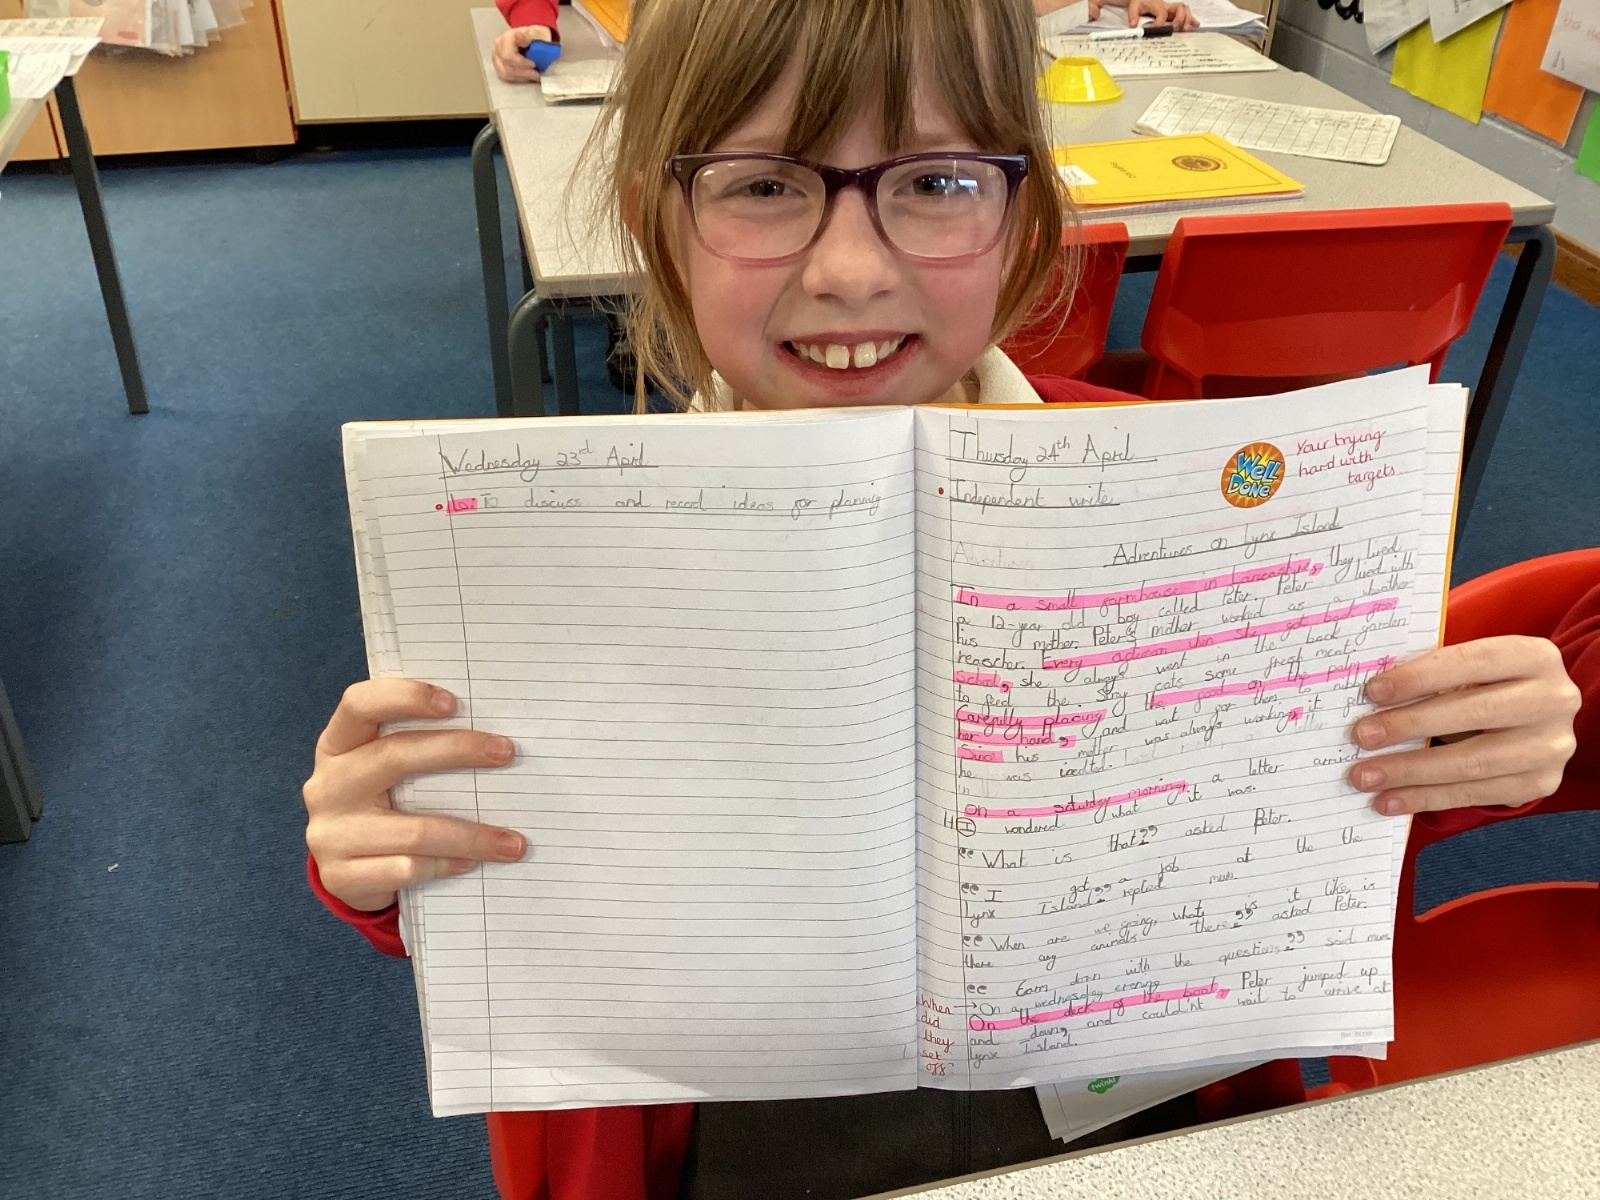 Wednesday 23rd April
Lo: To discuss and record ideas for planning
Thursday 24th April
Independent write
WELL DONE
Your trying
hard with
targets
Adventures
Adventures on Lynx Island
In a small farmhouse in Lancashire, they lived
a 12-year old boy called Peter. Peter lived with
his mother. Peter's mother worked as a wheather
reasrcher. Every afternoon when she got back from
School, she always went in the back garden
to feed the stray cats some fresh meat.
Carefully placing the food on the palm of
her hand, and wait for them to nibble
Since his mother was always working, it felt
he was
in
On a saturday morning, a letter arrived
H I wondered what it was.
"What is that?" asked Peter.
"I got a job at the the
Lynx Island." replied mum.
"When are we going, what is it like, is
there any animals there?" asked Peter.
"Carm down with the questions." said mum
On a wednesday evening
On the deck of the boat, Peter jumped up
and down, and could'nt wait to arrive at
Lynx Island.
When
did
they
set
off?
twinkl